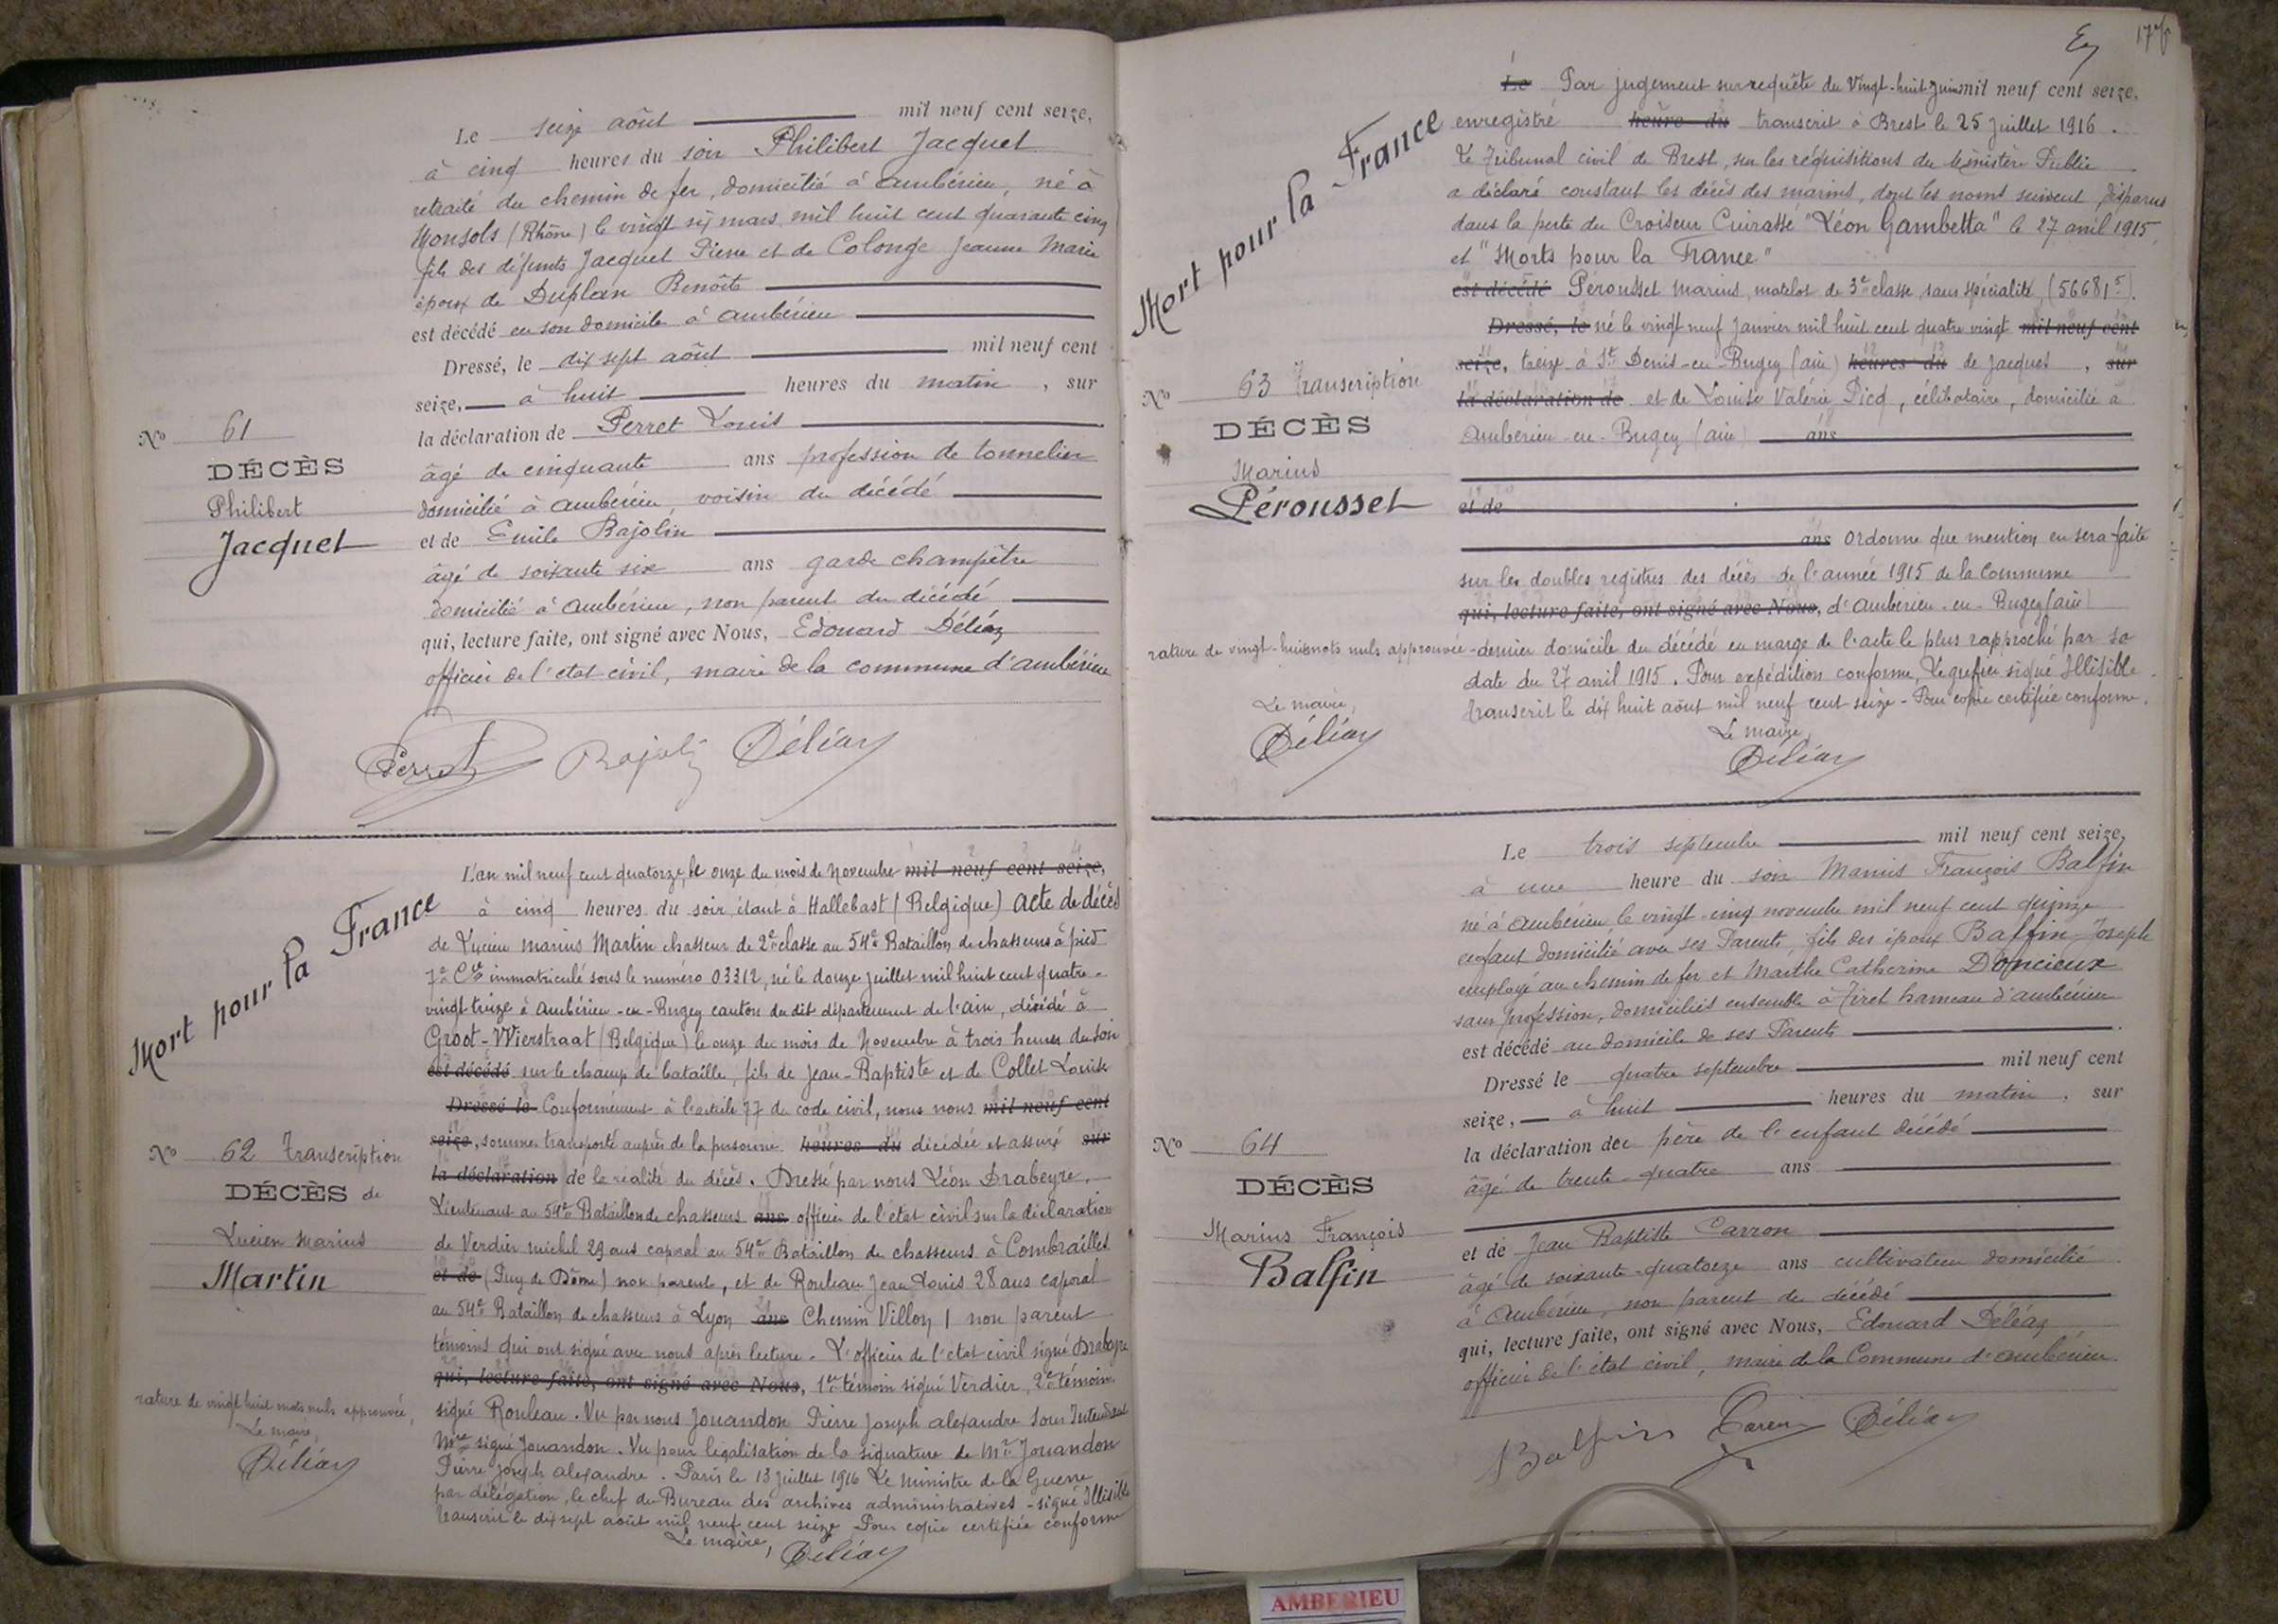 Le seize août mil neuf cent seize,
à cinq heures du soir Philibert Jacquet
retraité du chemin de fer, domicilié à Ambérieu, né à
Monsols (Rhône) le vingt six mars mil huit cent quarante cinq
fils des défunts Jacquet Pierre et de Colonge Jeanne Marie
époux de Duplan Benoîte
est décédé en son domicile à Ambérieu
Dressé, le dix sept août mil neuf cent
seize, à huit heures du matin, sur
la déclaration de Perret Louis
âgé de cinquante ans profession de tonnelier
domicilié à Ambérieu voisin du décédé
et de Emile Bajolin
âgé de soixante six ans garde champêtre
domicilié à Ambérieu, non parent du décédé
qui, lecture faite, ont signé avec Nous, Edouard Déléaz
officier de l'état civil, maire de la commune d'Ambérieu
Perret Déléaz
N° 61
DÉCÈS
Philibert
Jacquet
Mort pour la France
L'an mil neuf cent quatorze, le onze du mois de Novembre mil neuf cent seize,
à cinq heures du soir, étant à Hallebast (Belgique) acte de décès
de Lucien Marius Martin chasseur de 2e classe au 54e Bataillon de chasseurs à pied
7e Cie immatriculé sous le numéro 03312, né le douze juillet mil huit cent quatre-
vingt treize à Ambérieu-en-Bugey canton du dit département de l'Ain, décédé à
Groot-Wierstraat (Belgique) le onze du mois de Novembre à trois heures du soir
est décédé sur le champ de bataille, fils de Jean-Baptiste et de Collet Louise
Dressé le Conformément à l'article 77 du code civil, nous nous mil neuf cent
seize, sommes transporté auprès de la personne heures du décédée et assuré sur
la déclaration de la réalité du décès. Dressé par nous Léon Drabeyre,
Lieutenant au 54e Bataillon de chasseurs ans officier de l'état civil sur la déclaration
de Verdier Michel 29 ans caporal au 54e Bataillon de chasseurs à Combrailles
et de (Puy de Dôme) non parent, et de Rouleau Jean Louis 28 ans caporal
au 54e Bataillon de chasseurs à Lyon ans Chemin Villon 1 non parent
témoins qui ont signé avec nous après lecture. L'officier de l'état civil signé Drabeyre
qui, lecture faite, ont signé avec Nous, 1er témoin signé Verdier, 2e témoin
signé Rouleau. Vu par nous Jouandon Pierre Joseph Alexandre Sous Intendant
Mre signé Jouandon. Vu pour légalisation de la signature de Mr Jouandon
Pierre Joseph Alexandre. Paris le 13 juillet 1916 Le Ministre de la Guerre
par délégation, le chef du Bureau des archives administratives - signé Illisible
Transcrit le dix sept août mil neuf cent seize Pour copie certifiée conforme
Le maire, Déléaz
N° 62 Transcription
DÉCÈS de
Lucien Marius
Martin
rature de vingt huit mots nuls approuvée,
Le maire,
Déléaz
176
Mort pour la France
Le Par jugement sur requête du Vingt-huit Juin mil neuf cent seize,
enregistré heure du transcrit à Brest le 25 Juillet 1916.
Le Tribunal civil de Brest, sur les réquisitions du Ministère Public
a déclaré constant les décès des marins, dont les noms suivent, disparus
dans la perte du Croiseur Cuirassé "Léon Gambetta" le 27 avril 1915,
et "Morts pour la France"
est décédé Pérousset Marius, matelot de 3e classe, sans spécialité, (56681 5).
Dressé, le né le vingt neuf Janvier mil huit cent quatre vingt mil neuf cent
seize, treize à St Denis-en-Bugey (ain) heures du de Jacques, sur
la déclaration de et de Louise Valérie Picq, célibataire, domicilié à
Ambérieu-en-Bugey (ain) ans
et de
ans Ordonne que mention en sera faite
sur les doubles registres des décès de l'année 1915 de la Commune
qui, lecture faite, ont signé avec Nous, d'Ambérieu-en-Bugey (ain)
dernier domicile du décédé en marge de l'acte le plus rapproché par sa
date du 27 avril 1915. Pour expédition conforme, Le greffier signé Illisible
Transcrit le dix huit août mil neuf cent seize - Pour copie certifiée conforme.
Le maire,
Déléaz
N° 63 Transcription
DÉCÈS
Marius
Pérousset
rature de vingt-huit mots nuls approuvée
Le maire,
Déléaz
Le trois septembre mil neuf cent seize,
à une heure du soir Marius François Balfin
né à Ambérieu le vingt-cinq novembre mil neuf cent quinze
enfant domicilié avec ses Parents, fils des époux Balfin Joseph
employé au chemin de fer et Marthe Catherine Doncieux
sans profession, domiciliés ensemble à Tiret hameau d'Ambérieu
est décédé au domicile de ses Parents
Dressé le quatre septembre mil neuf cent
seize, à huit heures du matin, sur
la déclaration du père de l'enfant décédé
âgé de trente-quatre ans
et de Jean Baptiste Carron
âgé de soixante-quatorze ans cultivateur domicilié
à Ambérieu, non parent du décédé
qui, lecture faite, ont signé avec Nous, Edouard Déléaz
officier de l'état civil, maire de la Commune d'Ambérieu
Balfin Déléaz
N° 64
DÉCÈS
Marius François
Balfin
AMBERIEU